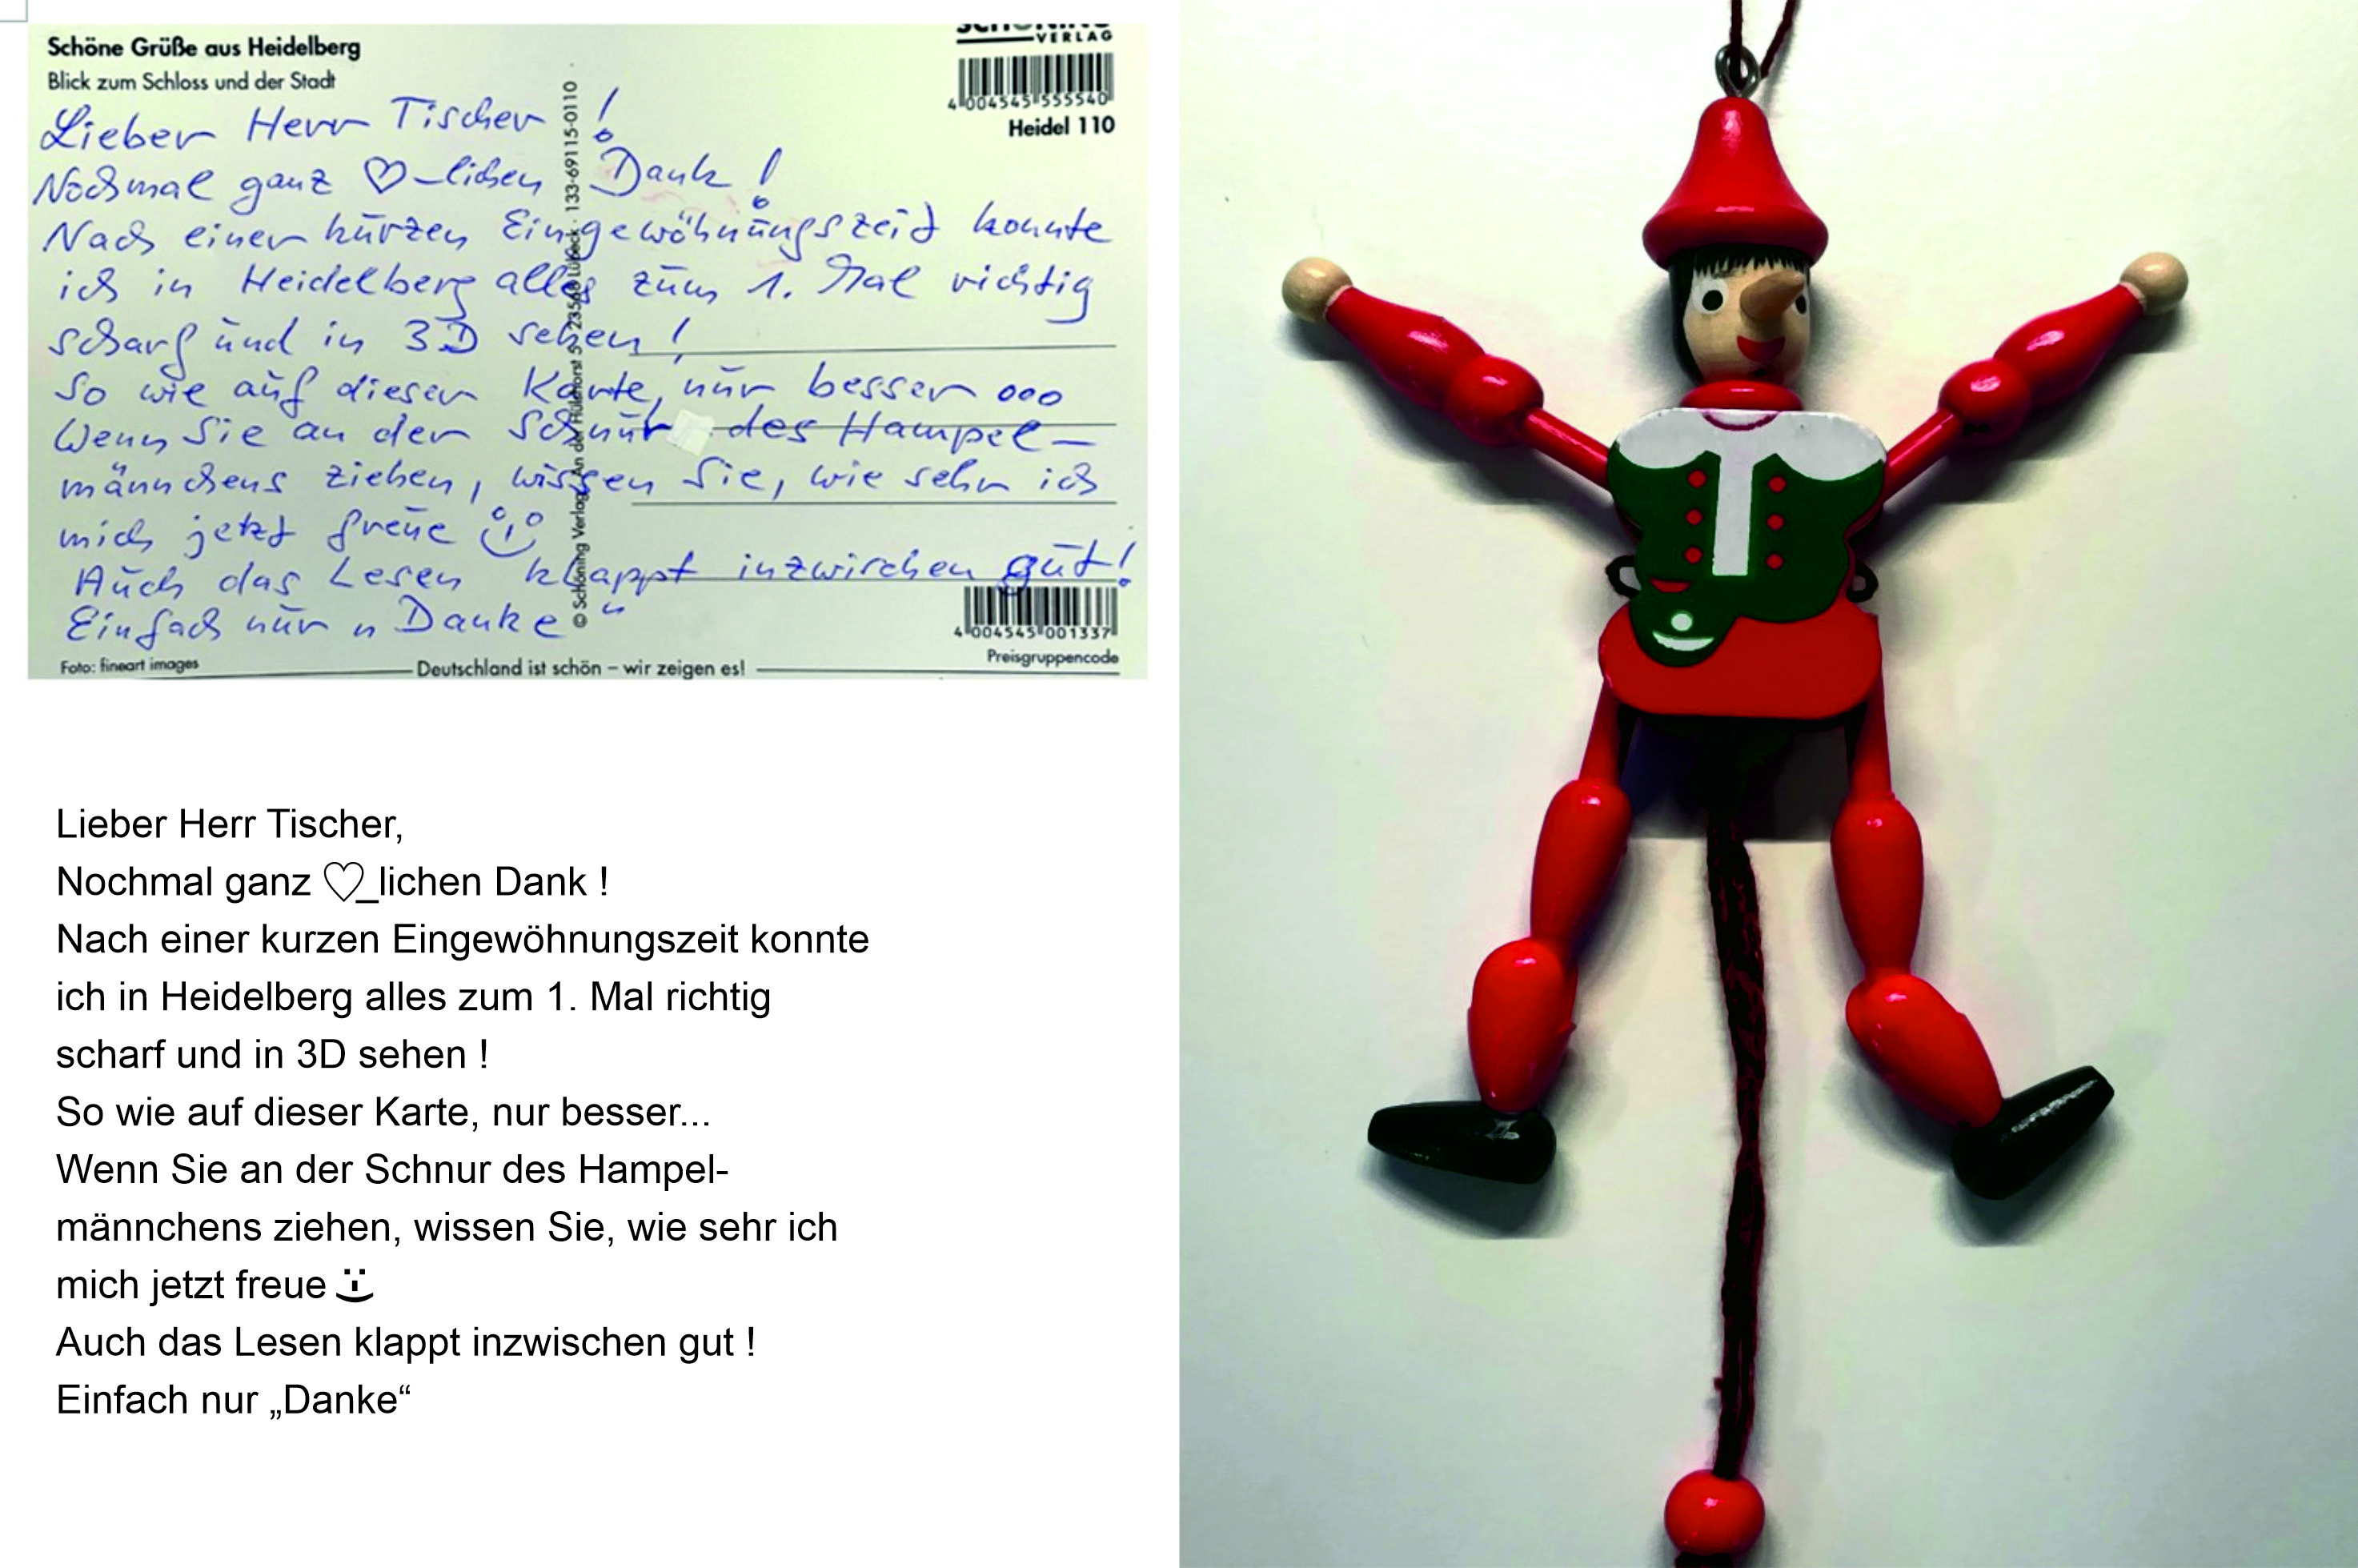 Schöne Grüße aus Heidelberg
Blick zum Schloss und der Stadt
VERLAG
4 004545 555540
Heidel 110
Lieber Herr Tischer !
Nochmal ganz ♡-lichen Dank !
Nach einer kurzen Eingewöhnungszeit konnte
ich in Heidelberg alles zum 1. Mal richtig
scharf und in 3D sehen !
So wie auf dieser Karte, nur besser ...
Wenn Sie an der Schnur des Hampel-
männchens ziehen, wissen Sie, wie sehr ich
mich jetzt freue
Auch das Lesen klappt inzwischen gut !
Einfach nur „Danke“
© Schöning Verlag An der Lübeck · 133-69115-0110
4 004545 001337
Preisgruppencode
Foto: fineart images
Deutschland ist schön – wir zeigen es!
Lieber Herr Tischer,
Nochmal ganz ♡_lichen Dank !
Nach einer kurzen Eingewöhnungszeit konnte
ich in Heidelberg alles zum 1. Mal richtig
scharf und in 3D sehen !
So wie auf dieser Karte, nur besser...
Wenn Sie an der Schnur des Hampel-
männchens ziehen, wissen Sie, wie sehr ich
mich jetzt freue
Auch das Lesen klappt inzwischen gut !
Einfach nur „Danke“